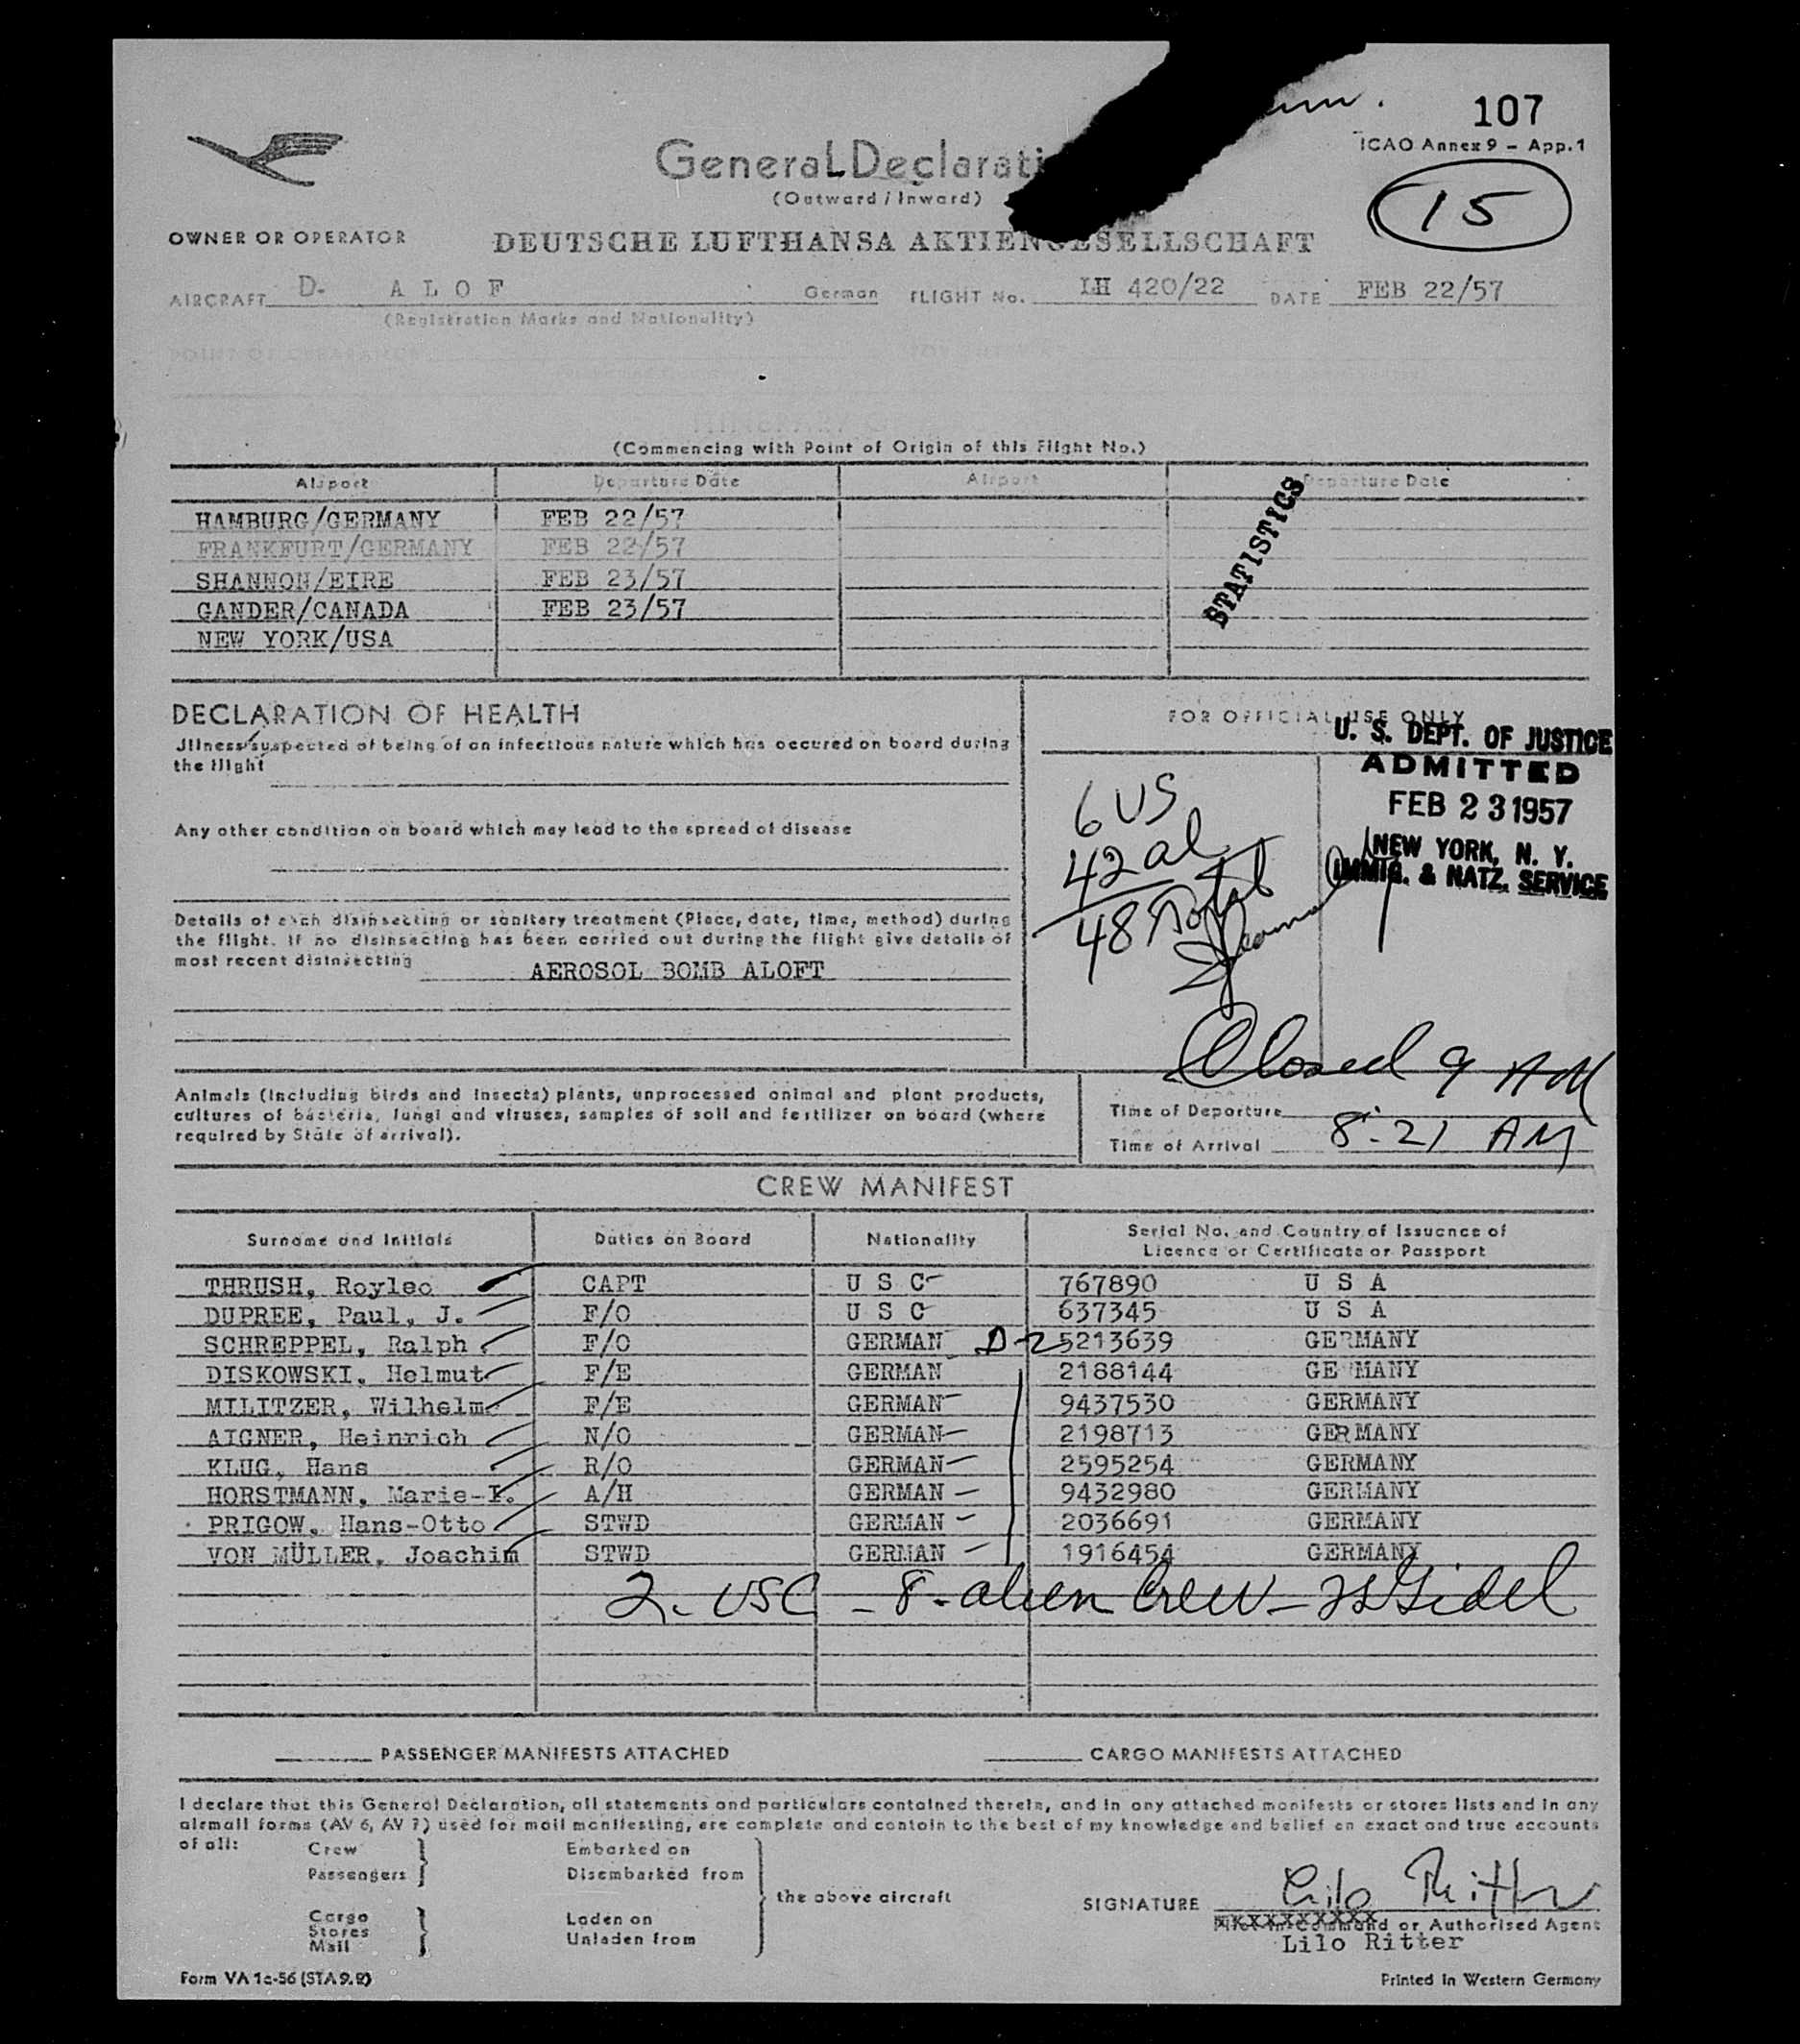 107
ICAO Annex 9 - App.1
General Declarati
(Outward / Inward)
15
OWNER OR OPERATOR DEUTSCHE LUFTHANSA AKTIENGESELLSCHAFT
AIRCRAFT D- A L O F German FLIGHT No. LH 420/22 DATE FEB 22/57
(Registration Marks and Nationality)
POINT OF CLEARANCE
(Commencing with Point of Origin of this Flight No.)
Airport Departure Date Airport Departure Date
HAMBURG/GERMANY FEB 22/57
FRANKFURT/GERMANY FEB 22/57
SHANNON/EIRE FEB 23/57
GANDER/CANADA FEB 23/57
NEW YORK/USA
STATISTICS
DECLARATION OF HEALTH
Jllness suspected of being of an infectious nature which has occured on board during
the flight
Any other condition on board which may lead to the spread of disease
Details of each disinsecting or sanitary treatment (Place, date, time, method) during
the flight. If no disinsecting has been carried out during the flight give details of
most recent disinsecting AEROSOL BOMB ALOFT
FOR OFFICIAL USE ONLY
U. S. DEPT. OF JUSTICE
ADMITTED
FEB 23 1957
NEW YORK, N. Y.
IMMIG. & NATZ. SERVICE
6 US
42 al
48 Total
Closed 9 AM
Animals (including birds and insects) plants, unprocessed animal and plant products,
cultures of bacteria, fungi and viruses, samples of soil and fertilizer on board (where
required by State of arrival).
Time of Departure
Time of Arrival 8:21 AM
CREW MANIFEST
Surname and Initials Duties on Board Nationality Serial No. and Country of Issuance of
Licence or Certificate or Passport
THRUSH, Royleo CAPT U S C 767890 U S A
DUPREE, Paul, J. F/O U S C 637345 U S A
SCHREPPEL, Ralph F/O GERMAN D-2 5213639 GERMANY
DISKOWSKI, Helmut F/E GERMAN 2188144 GE MANY
MILITZER, Wilhelm F/E GERMAN 9437530 GERMANY
AIGNER, Heinrich N/O GERMAN 2198713 GERMANY
KLUG, Hans R/O GERMAN 2595254 GERMANY
HORSTMANN, Marie-L. A/H GERMAN 9432980 GERMANY
PRIGOW, Hans-Otto STWD GERMAN 2036691 GERMANY
VON MÜLLER, Joachim STWD GERMAN 1916454 GERMANY
2. USC - 8 - alien Crew -
PASSENGER MANIFESTS ATTACHED CARGO MANIFESTS ATTACHED
I declare that this General Declaration, all statements and particulars contained therein, and in any attached manifests or stores lists and in any
airmail forms (AV 6, AV 7) used for mail manifesting, are complete and contain to the best of my knowledge and belief an exact and true accounts
of all: Crew Embarked on
Passengers Disembarked from
the above aircraft
Cargo Laden on
Stores
Mail Unladen from
SIGNATURE Lilo Ritter
Pilot in Command or Authorised Agent
Lilo Ritter
Form VA 1c-56 (STA 9.2)
Printed in Western Germany